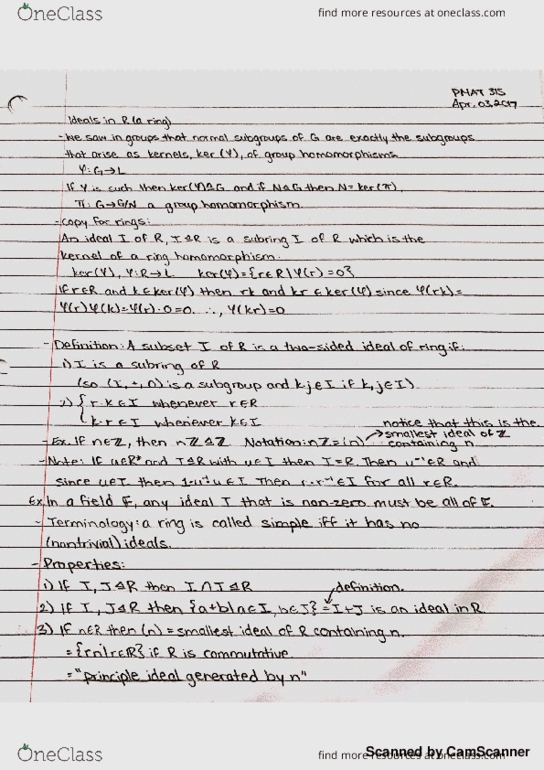 OneClass
find more resources at oneclass.com
PMAT 315
Apr. 03, 2017
Ideals in R (a ring)
- We saw in groups that normal subgroups of G are exactly the subgroups
that arise as kernels, ker (φ), of group homomorphisms.
φ: G→L
If φ is such then ker(φ)⊴G and if N⊴G then N = ker(π),
π: G→G/N a group homomorphism.
- copy for rings:
An ideal I of R, I⊴R is a subring I of R which is the
kernel of a ring homomorphism.
ker(φ), φ: R→L ker(φ) = {r∈R | φ(r) = 0}
If r∈R and k∈ker(φ) then rk and kr ∈ ker(φ) since φ(rk) =
φ(r)φ(k) = φ(r)·0 = 0. ∴, φ(kr) = 0
- Definition: A subset I of R is a two-sided ideal of ring if:
1) I is a subring of R
(so (I, +, 0) is a subgroup and k·j∈I if k, j∈I).
2) { r·k∈I whenever r∈R
k·r∈I whenever k∈I
notice that this is the
- Ex. If n∈Z, then nZ⊴Z Notation: nZ = (n) → smallest ideal of Z
containing n.
- Note: If u∈R* and I⊴R with u∈I then I = R. Then u⁻¹∈R and
since u∈I then 1 = u⁻¹u∈I Then r = r·1∈I for all r∈R.
Ex. In a field F, any ideal I that is non-zero must be all of F.
- Terminology: a ring is called simple iff it has no
(nontrivial) ideals.
- Properties:
1) If I, J⊴R then I∩J⊴R
definition.
2) If I, J⊴R then {a+b | a∈I, b∈J} = I+J is an ideal in R
3) If n∈R then (n) = smallest ideal of R containing n.
= {rn | r∈R} if R is commutative
= "principle ideal generated by n"
OneClass
find more resources at oneclass.com
Scanned by CamScanner